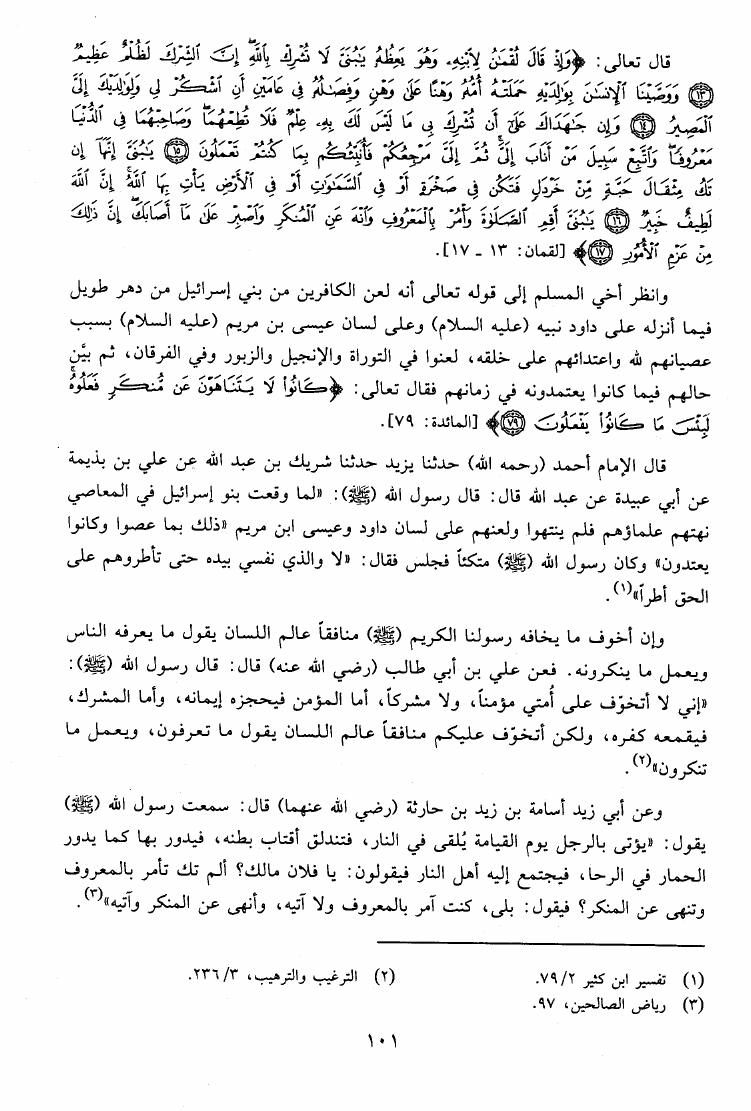 قال تعالى: ﴿وَإِذْ قَالَ لُقْمَـٰنُ لِٱبْنِهِۦ وَهُوَ يَعِظُهُۥ يَـٰبُنَىَّ لَا تُشْرِكْ بِٱللَّهِ إِنَّ ٱلشِّرْكَ لَظُلْمٌ عَظِيمٌ
﴿١٣﴾ وَوَصَّيْنَا ٱلْإِنسَـٰنَ بِوَٰلِدَيْهِ حَمَلَتْهُ أُمُّهُۥ وَهْنًا عَلَىٰ وَهْنٍ وَفِصَـٰلُهُۥ فِى عَامَيْنِ أَنِ ٱشْكُرْ لِى وَلِوَٰلِدَيْكَ إِلَىَّ
ٱلْمَصِيرُ ﴿١٤﴾ وَإِن جَـٰهَدَاكَ عَلَىٰٓ أَن تُشْرِكَ بِى مَا لَيْسَ لَكَ بِهِۦ عِلْمٌ فَلَا تُطِعْهُمَا وَصَاحِبْهُمَا فِى ٱلدُّنْيَا
مَعْرُوفًا وَٱتَّبِعْ سَبِيلَ مَنْ أَنَابَ إِلَىَّ ثُمَّ إِلَىَّ مَرْجِعُكُمْ فَأُنَبِّئُكُم بِمَا كُنتُمْ تَعْمَلُونَ ﴿١٥﴾ يَـٰبُنَىَّ إِنَّهَآ إِن
تَكُ مِثْقَالَ حَبَّةٍ مِّنْ خَرْدَلٍ فَتَكُن فِى صَخْرَةٍ أَوْ فِى ٱلسَّمَـٰوَٰتِ أَوْ فِى ٱلْأَرْضِ يَأْتِ بِهَا ٱللَّهُ إِنَّ ٱللَّهَ
لَطِيفٌ خَبِيرٌ ﴿١٦﴾ يَـٰبُنَىَّ أَقِمِ ٱلصَّلَوٰةَ وَأْمُرْ بِٱلْمَعْرُوفِ وَٱنْهَ عَنِ ٱلْمُنكَرِ وَٱصْبِرْ عَلَىٰ مَآ أَصَابَكَ إِنَّ ذَٰلِكَ
مِنْ عَزْمِ ٱلْأُمُورِ ﴿١٧﴾﴾ [لقمان: ١٣ ـ ١٧].
وانظر أخي المسلم إلى قوله تعالى أنه لعن الكافرين من بني إسرائيل من دهر طويل
فيما أنزله على داود نبيه (عليه السلام) وعلى لسان عيسى بن مريم (عليه السلام) بسبب
عصيانهم لله واعتدائهم على خلقه، لعنوا في التوراة والإنجيل والزبور وفي الفرقان، ثم بيَّن
حالهم فيما كانوا يعتمدونه في زمانهم فقال تعالى: ﴿كَانُوا۟ لَا يَتَنَاهَوْنَ عَن مُّنكَرٍ فَعَلُوهُ
لَبِئْسَ مَا كَانُوا۟ يَفْعَلُونَ ﴿٧٩﴾﴾ [المائدة: ٧٩].
قال الإمام أحمد (رحمه الله) حدثنا يزيد حدثنا شريك بن عبد الله عن علي بن بذيمة
عن أبي عبيدة عن عبد الله قال: قال رسول الله (ﷺ): «لما وقعت بنو إسرائيل في المعاصي
نهتهم علماؤهم فلم ينتهوا ولعنهم على لسان داود وعيسى ابن مريم «ذلك بما عصوا وكانوا
يعتدون» وكان رسول الله (ﷺ) متكئاً فجلس فقال: «لا والذي نفسي بيده حتى تأطروهم على
الحق أطراً»(١).
وإن أخوف ما يخافه رسولنا الكريم (ﷺ) منافقاً عالم اللسان يقول ما يعرفه الناس
ويعمل ما ينكرونه. فعن علي بن أبي طالب (رضي الله عنه) قال: قال رسول الله (ﷺ):
«إني لا أتخوّف على أُمتي مؤمناً، ولا مشركاً، أما المؤمن فيحجزه إيمانه، وأما المشرك،
فيقمعه كفره، ولكن أتخوّف عليكم منافقاً عالم اللسان يقول ما تعرفون، ويعمل ما
تنكرون»(٢).
وعن أبي زيد أسامة بن زيد بن حارثة (رضي الله عنهما) قال: سمعت رسول الله (ﷺ)
يقول: «يؤتى بالرجل يوم القيامة يُلقى في النار، فتندلق أقتاب بطنه، فيدور بها كما يدور
الحمار في الرحا، فيجتمع إليه أهل النار فيقولون: يا فلان مالك؟ ألم تك تأمر بالمعروف
وتنهى عن المنكر؟ فيقول: بلى، كنت آمر بالمعروف ولا آتيه، وأنهى عن المنكر وآتيه»(٣).
(١) تفسير ابن كثير ٧٩/٢.
(٢) الترغيب والترهيب، ٢٣٦/٣.
(٣) رياض الصالحين، ٩٧.
١٠١